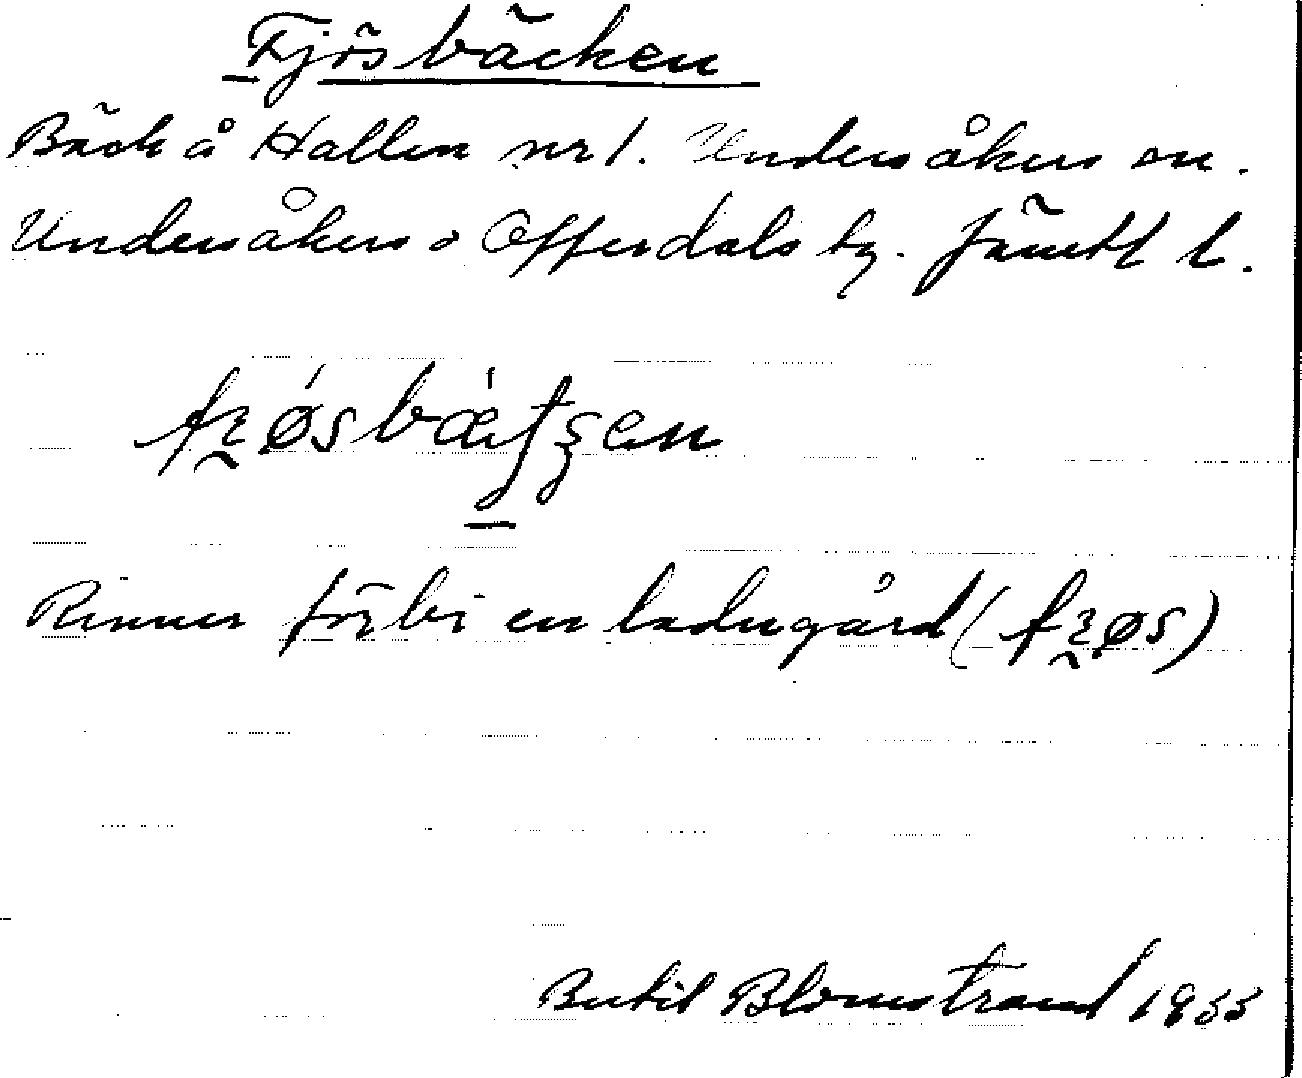 Fjösbäcken
Bäck å Hallen nr 1. Undersåkers sn.
Undersåkers o Offerdals tg. Jämtl l.
Rinner förbi en ladugård
Bertil Blomstrand 1955